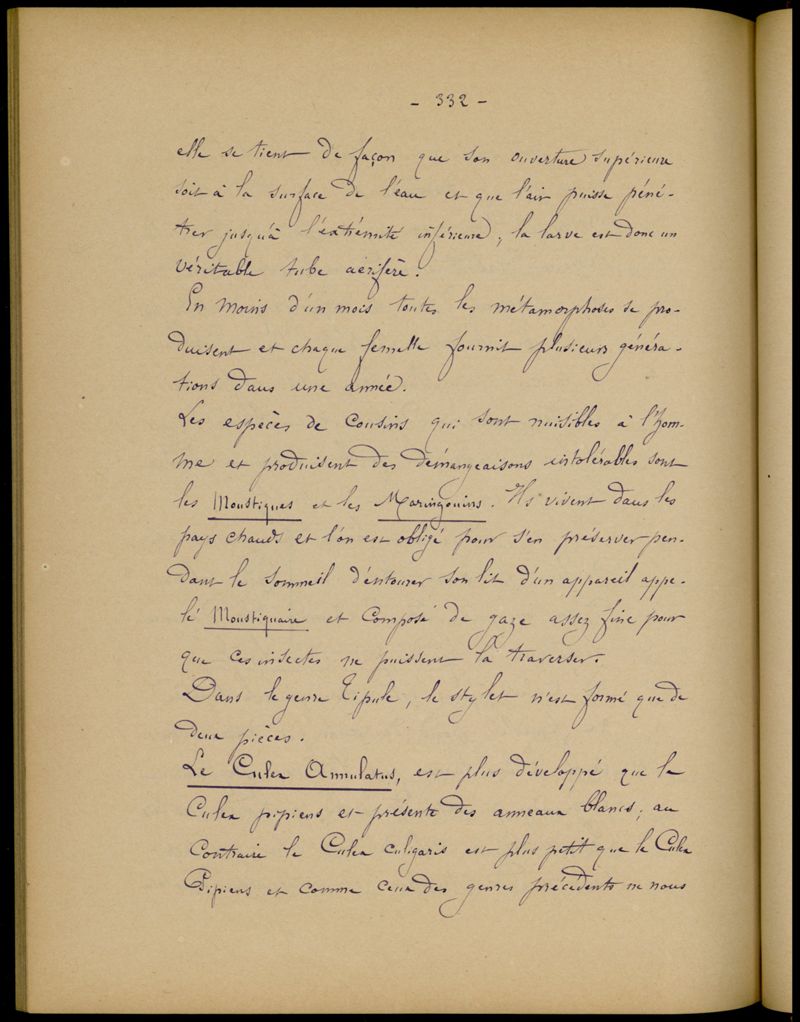 - 332 -
elle se tient de façon que son ouverture supérieure
soit à la surface de l'eau et que l'air puisse péné-
trer jusqu'à l'extrémité inférieure ; la larve est donc un
véritable tube aérifère.
En moins d'un mois toutes les métamorphoses se pro-
duisent et chaque femelle fournit plusieurs généra-
tions dans une année.
Les espèces de cousins qui sont nuisibles à l'hom-
me et produisent des démangeaisons intolérables sont
les Moustiques et les Maringouins. Ils vivent dans les
pays chauds et l'on est obligé pour s'en préserver pen-
dant le sommeil d'entourer son lit d'un appareil appe-
lé Moustiquaire et composé de gaze assez fine pour
que ces insectes ne puissent la traverser.
Dans le genre Tipule, le stylet n'est formé que de
deux pièces.
Le Culex Annulatus, est plus développé que le
Culex pipiens et présente des anneaux blancs ; au
contraire le Culex culigaris est plus petit que le Culex
Pipiens et comme ceux des genres précédents ne nous